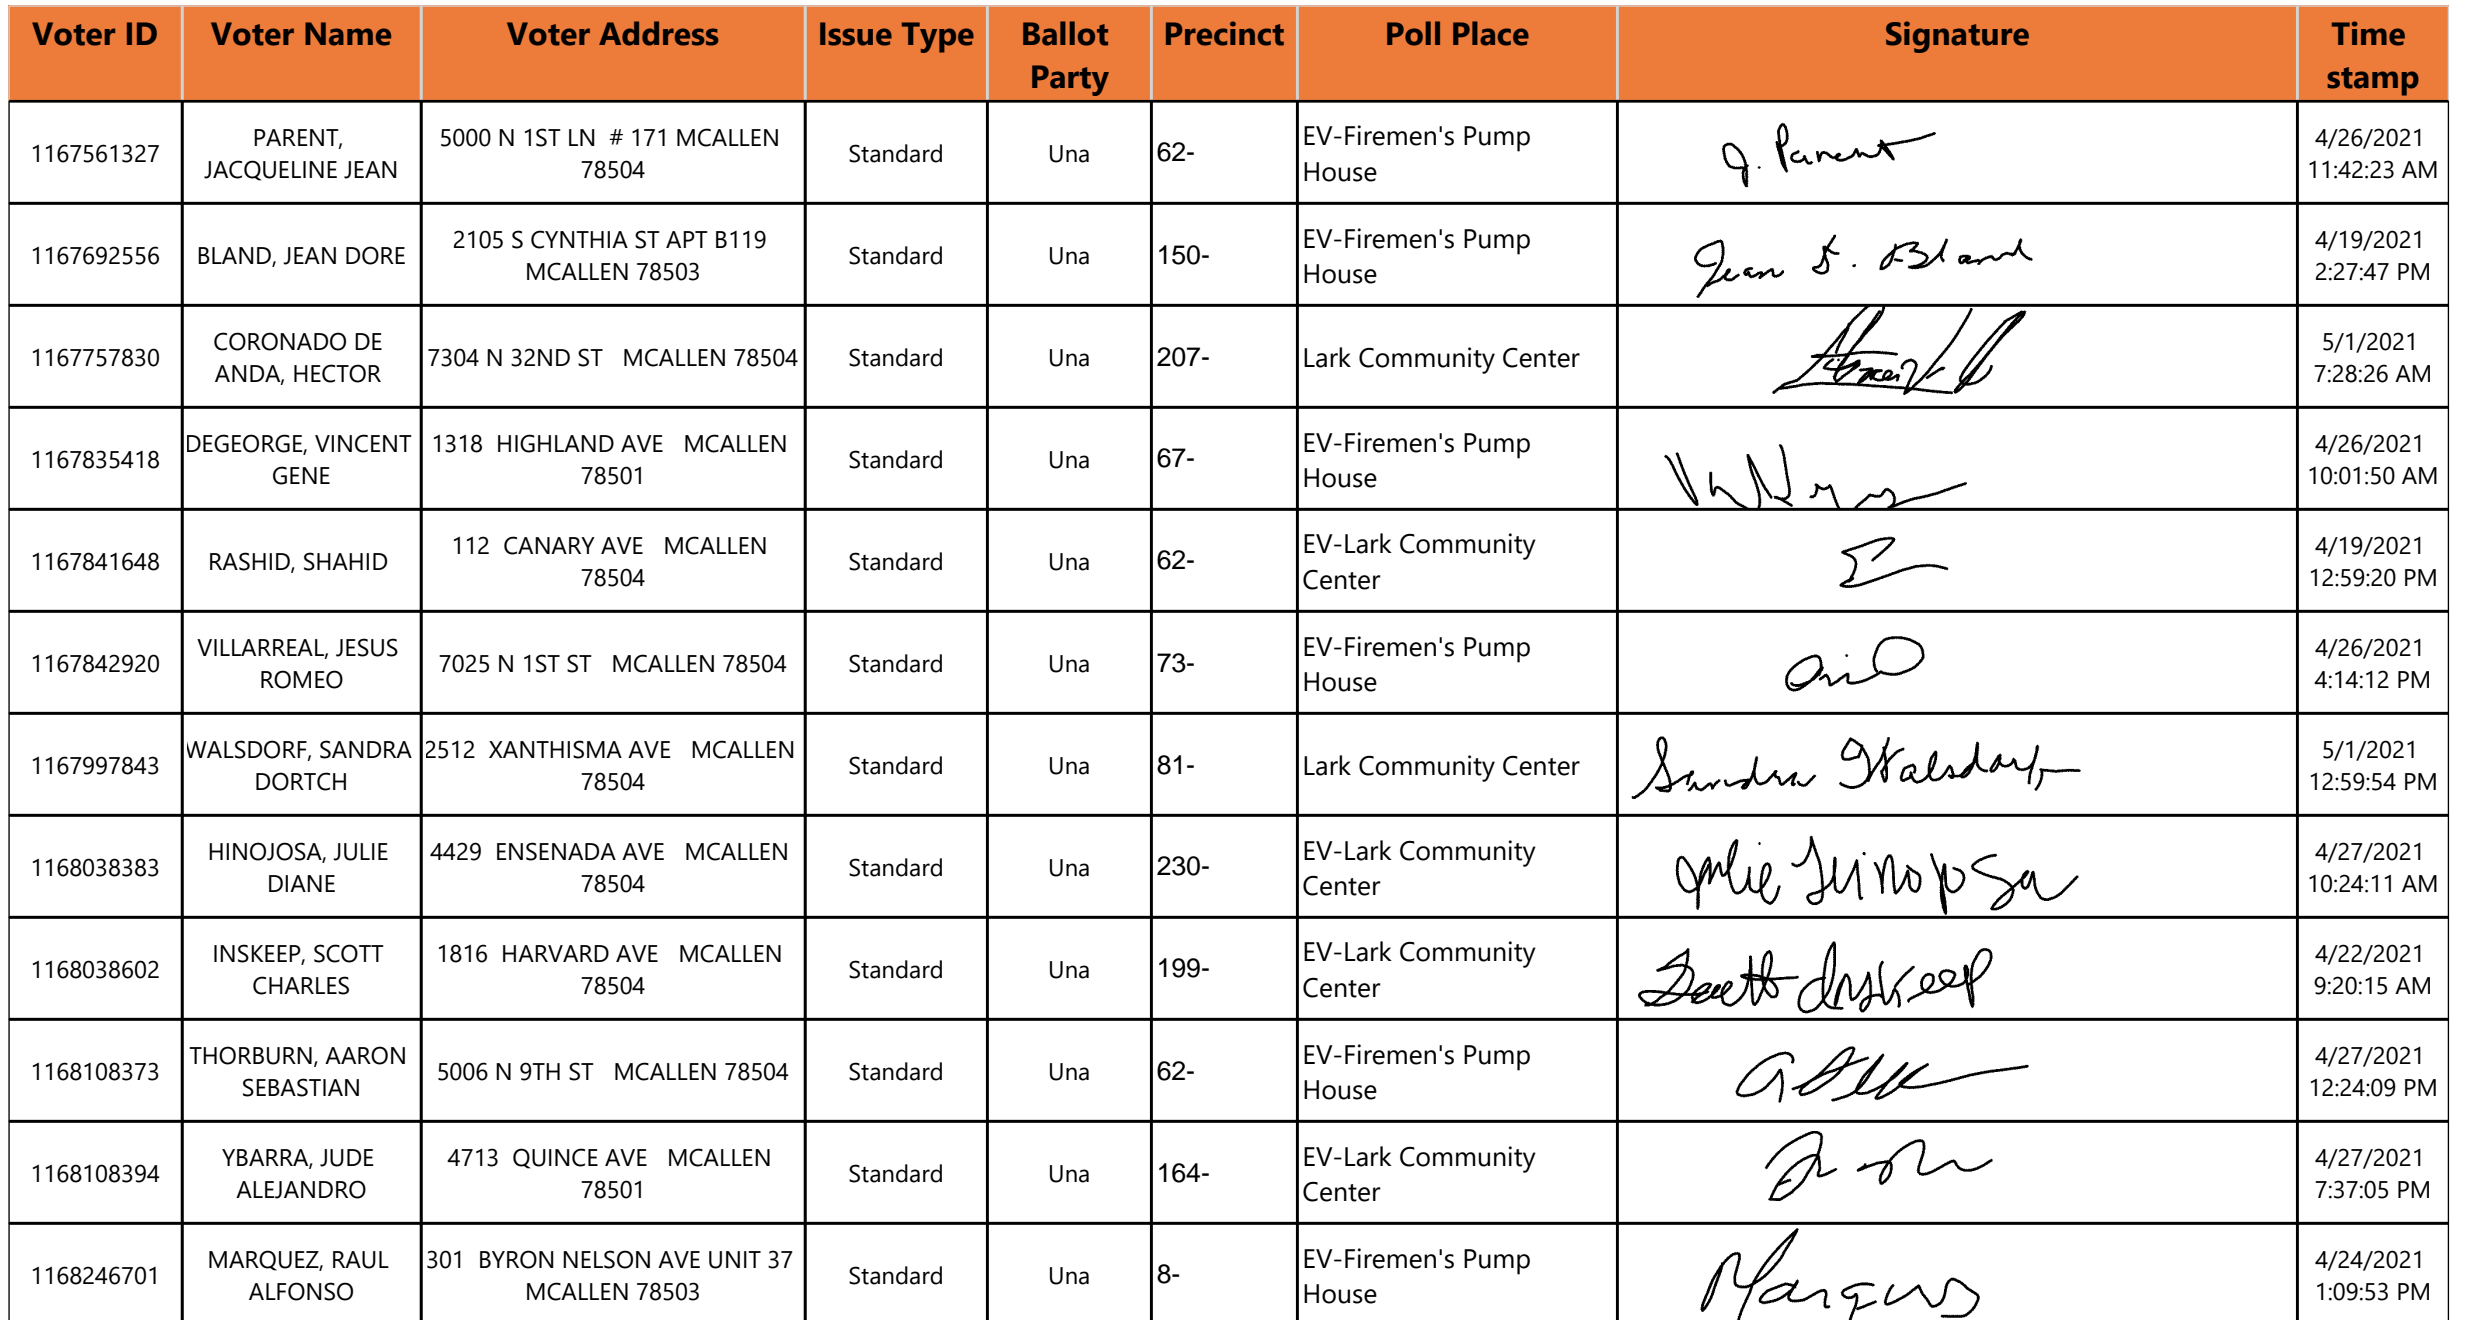 Voter ID Voter Name Voter Address Issue Type Ballot Party Precinct Poll Place Signature Time stamp
1167561327 PARENT, JACQUELINE JEAN 5000 N 1ST LN # 171 MCALLEN 78504 Standard Una 62- EV-Firemen's Pump House J. Parent 4/26/2021 11:42:23 AM
1167692556 BLAND, JEAN DORE 2105 S CYNTHIA ST APT B119 MCALLEN 78503 Standard Una 150- EV-Firemen's Pump House Jean D. Bland 4/19/2021 2:27:47 PM
1167757830 CORONADO DE ANDA, HECTOR 7304 N 32ND ST MCALLEN 78504 Standard Una 207- Lark Community Center 5/1/2021 7:28:26 AM
1167835418 DEGEORGE, VINCENT GENE 1318 HIGHLAND AVE MCALLEN 78501 Standard Una 67- EV-Firemen's Pump House 4/26/2021 10:01:50 AM
1167841648 RASHID, SHAHID 112 CANARY AVE MCALLEN 78504 Standard Una 62- EV-Lark Community Center 4/19/2021 12:59:20 PM
1167842920 VILLARREAL, JESUS ROMEO 7025 N 1ST ST MCALLEN 78504 Standard Una 73- EV-Firemen's Pump House 4/26/2021 4:14:12 PM
1167997843 WALSDORF, SANDRA DORTCH 2512 XANTHISMA AVE MCALLEN 78504 Standard Una 81- Lark Community Center Sandra Walsdorf 5/1/2021 12:59:54 PM
1168038383 HINOJOSA, JULIE DIANE 4429 ENSENADA AVE MCALLEN 78504 Standard Una 230- EV-Lark Community Center Julie Hinojosa 4/27/2021 10:24:11 AM
1168038602 INSKEEP, SCOTT CHARLES 1816 HARVARD AVE MCALLEN 78504 Standard Una 199- EV-Lark Community Center Scott Inskeep 4/22/2021 9:20:15 AM
1168108373 THORBURN, AARON SEBASTIAN 5006 N 9TH ST MCALLEN 78504 Standard Una 62- EV-Firemen's Pump House 4/27/2021 12:24:09 PM
1168108394 YBARRA, JUDE ALEJANDRO 4713 QUINCE AVE MCALLEN 78501 Standard Una 164- EV-Lark Community Center 4/27/2021 7:37:05 PM
1168246701 MARQUEZ, RAUL ALFONSO 301 BYRON NELSON AVE UNIT 37 MCALLEN 78503 Standard Una 8- EV-Firemen's Pump House 4/24/2021 1:09:53 PM